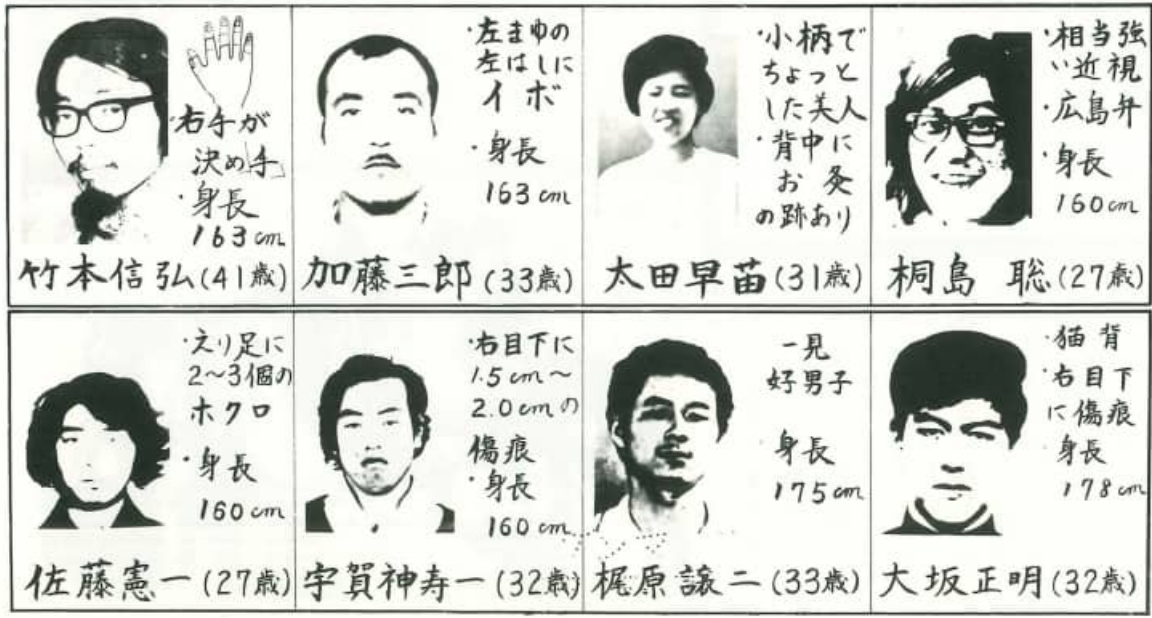 ・右手が
決め手
・身長
163cm
竹本信弘(41歳)
・左まゆの
左はしに
イボ
・身長
163cm
加藤三郎(33歳)
・小柄で
ちょっと
した美人
・背中に
お灸
の跡あり
太田早苗(31歳)
・相当強
い近視
・広島弁
・身長
160cm
桐島 聡(27歳)
・えり足に
2〜3個の
ホクロ
・身長
160cm
佐藤憲一(27歳)
・右目下に
1.5cm〜
2.0cmの
傷痕
・身長
160cm
宇賀神寿一(32歳)
一見
好男子
・身長
175cm
梶原譲二(33歳)
・猫背
・右目下
に傷痕
・身長
178cm
大坂正明(32歳)